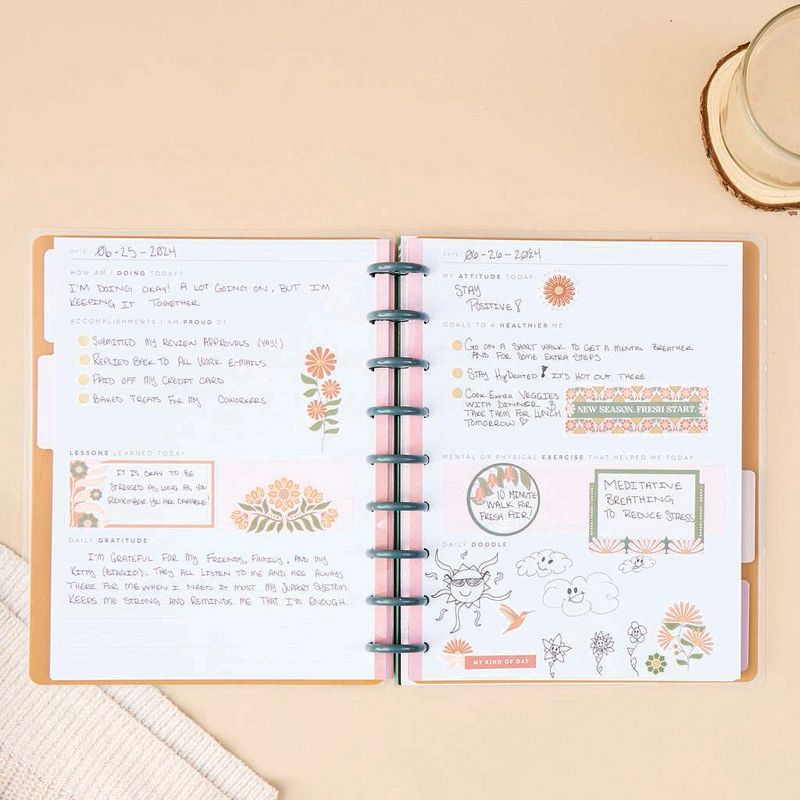 DATE: 06-25-2024
HOW AM I DOING TODAY?
I'M DOING OKAY! A LOT GOING ON, BUT I'M
KEEPING IT TOGETHER
ACCOMPLISHMENTS I AM PROUD OF
SUBMITTED MY REVIEW APPROVALS (YAY!)
REPLIED BACK TO ALL WORK E-MAILS
PAID OFF MY CREDIT CARD
BAKED TREATS FOR MY COWORKERS
LESSONS LEARNED TODAY:
IT IS OKAY TO BE
STRESSED AS LONG AS YOU
REMEMBER YOU ARE CAPABLE!
DAILY GRATITUDE:
I'M GRATEFUL FOR MY FRIENDS, FAMILY, AND MY
KITTY (BIAGIO). THEY ALL LISTEN TO ME AND ARE ALWAYS
THERE FOR ME WHEN I NEED IT MOST. MY SUPPORT SYSTEM
KEEPS ME STRONG AND REMINDS ME THAT I'M ENOUGH.
DATE: 06-26-2024
MY ATTITUDE TODAY:
STAY
POSITIVE!
GOALS TO A HEALTHIER ME
GO ON A SHORT WALK TO GET A MENTAL BREATHER
AND FOR SOME EXTRA STEPS
STAY HYDRATED! IT'S HOT OUT THERE
COOK EXTRA VEGGIES
WITH DINNER &
TAKE THEM FOR LUNCH
TOMORROW
NEW SEASON. FRESH START.
MENTAL OR PHYSICAL EXERCISE THAT HELPED ME TODAY
10 MINUTE
WALK FOR
FRESH AIR!
MEDITATIVE
BREATHING
TO REDUCE STRESS
DAILY DOODLE
MY KIND OF DAY